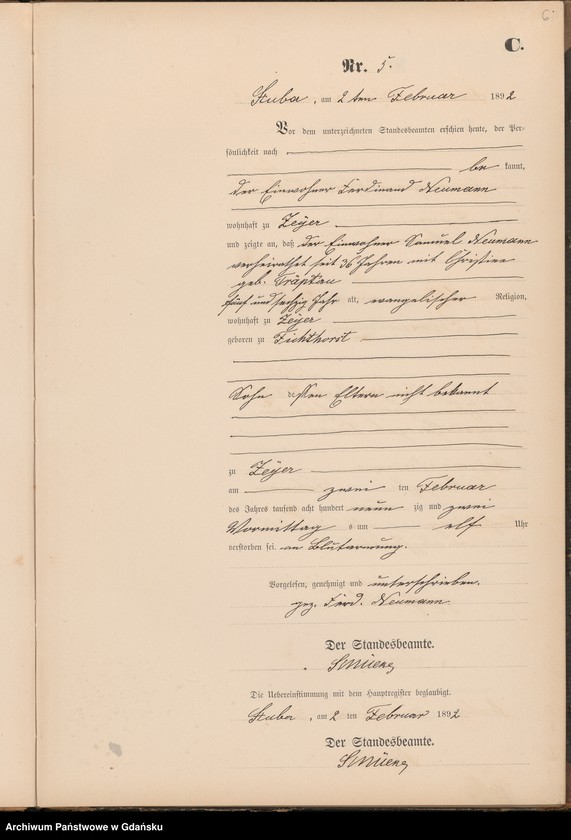 6.
C.
Nr. 5.
Stuba, am 2ten Februar 1892
Vor dem unterzeichneten Standesbeamten erschien heute, der Per-
sönlichkeit nach
be kannt,
der Einwohner Ferdinand Neumann
wohnhaft zu Zeyer
und zeigte an, daß der Einwohner Samuel Neumann
verheirathet seit 36 Jahren mit Christine
geb.
fünf und sechzig Jahr alt, evangelischer Religion,
wohnhaft zu Zeyer
geboren zu Fichthorst
Sohn dessen Eltern nicht bekannt
zu Zeyer
am zwei ten Februar
des Jahres tausend acht hundert neun zig und zwei
Vormittag s um elf Uhr
verstorben sei. an Blutarmung.
Vorgelesen, genehmigt und unterschrieben.
gez. Ferd. Neumann
Der Standesbeamte.
Die Uebereinstimmung mit dem Hauptregister beglaubigt.
Stuba, am 2 ten Februar 1892
Der Standesbeamte.
Archiwum Państwowe w Gdańsku